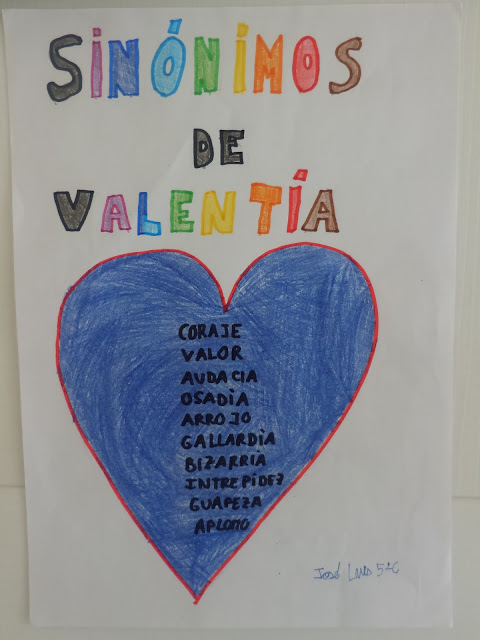 SINÓNIMOS
DE
VALENTÍA
CORAJE
VALOR
AUDACIA
OSADIA
ARROJO
GALLARDIA
BIZARRIA
INTREPIDEZ
GUAPEZA
APLOMO
José Luis 5ºC